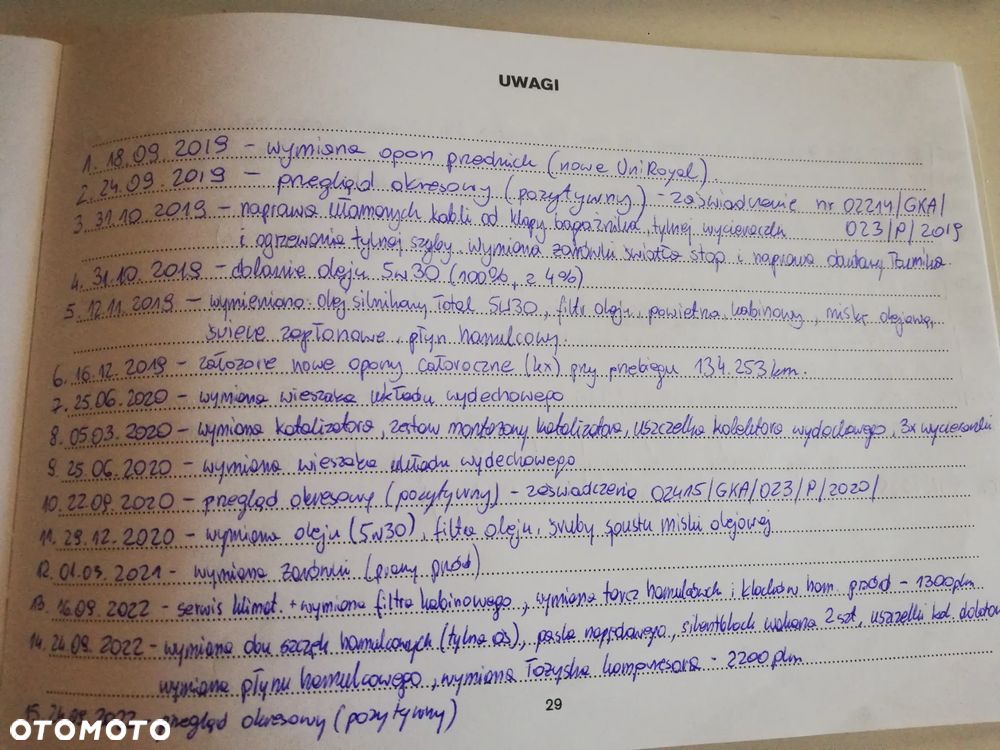 UWAGI
1. 18.09.2019 - wymiana opon przednich (nowe UniRoyal).
2. 24.09.2019 - przegląd okresowy (pozytywny) - zaświadczenie nr 02214/GKA/
023/P/2019
3. 31.10.2019 - naprawa ułamanych kabli od klapy bagażnika, tylnej wycieraczki
i ogrzewania tylnej szyby, wymiana żarówki światła stop i naprawa tłumika.
4. 31.10.2019 - dolanie oleju 5w30 (100%, z 4%)
5. 12.11.2019 - wymieniono: olej silnikowy Total 5W30, filtr oleju, powietrza, kabinowy, miskę olejową,
świece zapłonowe, płyn hamulcowy.
6. 16.12.2019 - założone nowe opony całoroczne (4x) przy przebiegu 134.253 km.
7. 25.06.2020 - wymiana wieszaka układu wydechowego
8. 05.03.2020 - wymiana katalizatora, zestaw montażowy katalizatora, uszczelka kolektora wydechowego, 3x wycieraczki
9. 25.06.2020 - wymiana wieszaka układu wydechowego
10. 22.09.2020 - przegląd okresowy (pozytywny) - zaświadczenie 02415/GKA/023/P/2020/
11. 29.12.2020 - wymiana oleju (5w30), filtra oleju, śruby spustu miski olejowej
12. 01.03.2021 - wymiana żarówki (prawy przód)
13. 16.09.2022 - serwis klimat. + wymiana filtra kabinowego, wymiana tarcz hamulcowych i klocków ham. przód - 1300 pln
14. 24.09.2022 - wymiana obu szczęk hamulcowych (tylna oś), paska napędowego, silentblock wahacza 2 szt, uszczelki kol. dolotow
wymiana płynu hamulcowego, wymiana łożyska kompresora - 2200 pln
15. 24.09.2022 - przegląd okresowy (pozytywny)
29
OTOMOTO